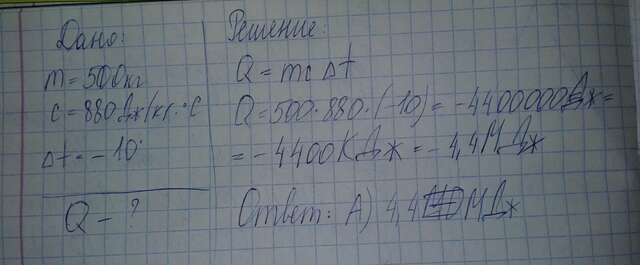 Дано:
m = 500кг
c = 880 Дж/кг·°С
Δt = -10°
Q - ?
Решение:
Q = mcΔt
Q = 500·880·(-10) = -4400000Дж =
= -4400КДж = -4,4МДж
Ответ: А) 4,4 МДж